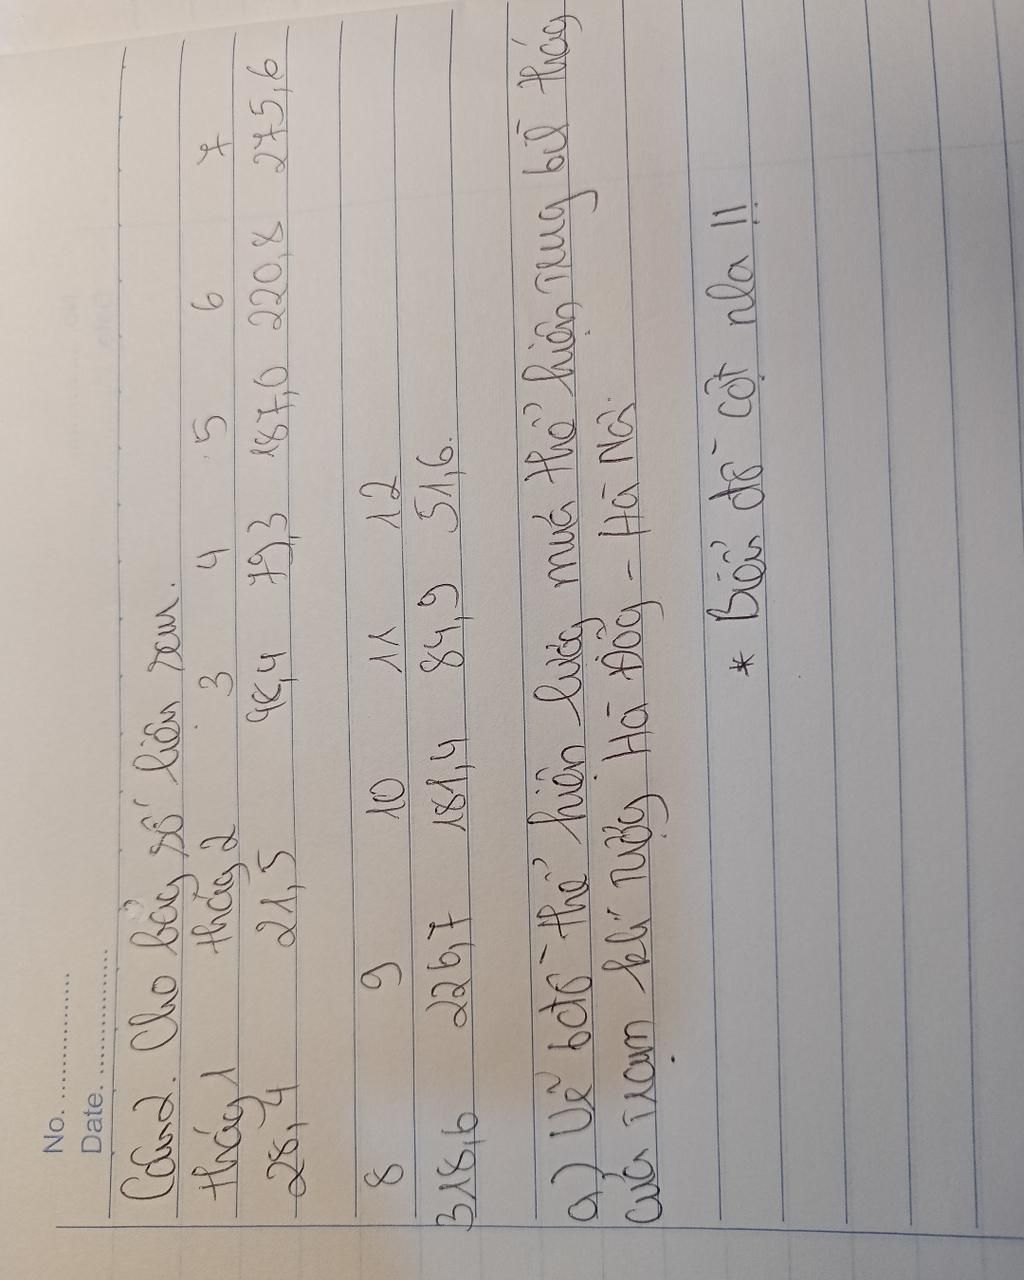 No.
Date.
Câu 2. Cho bảng số liệu sau.
tháng 1 tháng 2 3 4 5 6 7
28,4 21,5 48,4 79,3 187,0 220,8 275,6
8 9 10 11 12
318,6 226,7 181,4 84,9 51,6.
a) Vẽ bđồ thể hiện lượng mưa thể hiện trung bìh tháng
của trạm khí tượng Hà Đông - Hà Nội.
* Biểu đồ cột nha !!